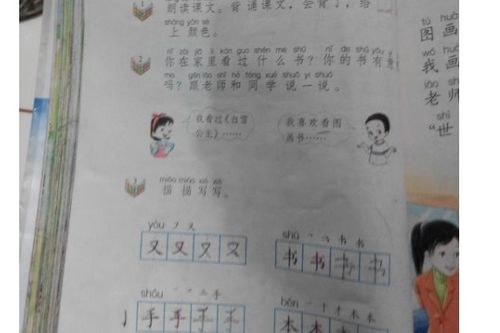 朗读课文。背诵课文，会背了，给
shàng yán sè
上 颜色。
2
nǐ zài jiā lǐ kàn guo shén me shū nǐ de shū yǒu
你在家里看过什么书？你的书有
ma gēn lǎo shī hé tóng xué shuō yi shuō
吗？跟老师和同学说一说。
我看过《白雪
公主》……
我喜欢看图
画书……
3
miáo miáo xiě xiě
描描写写。
yòu フ又
又 又 又 又
shū 书书
书 书 书 书
shǒu 二三手
手 手 手 手
běn 一十才木本
本 本 本 本
tú huà
图画
wǒ huà
我画
lǎo shī
老师
shì
“世